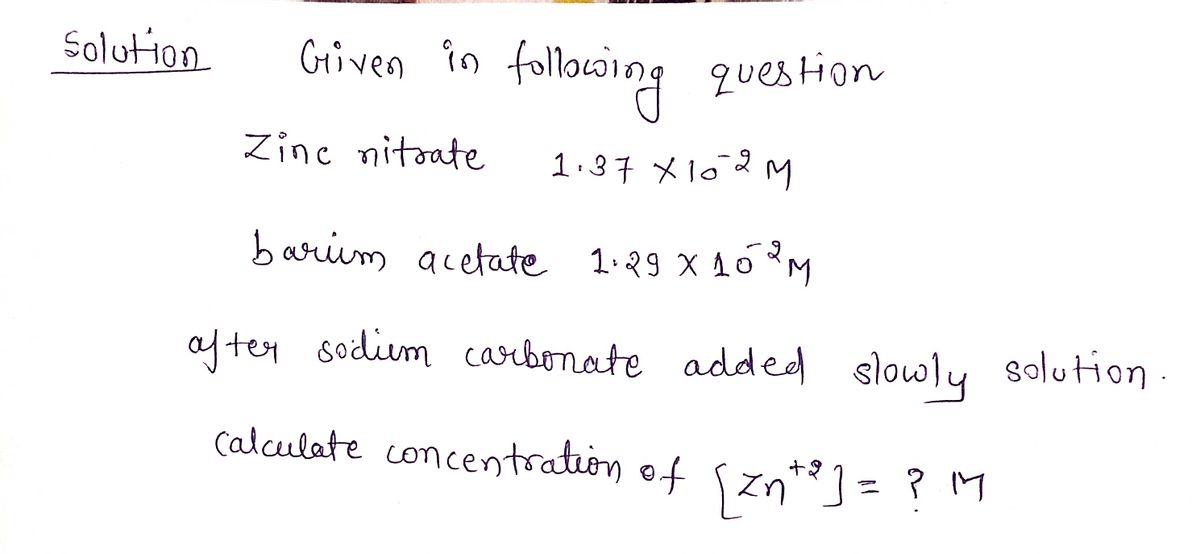 Solution Given in following question
Zinc nitrate 1.37 × 10⁻² M
barium acetate 1.29 × 10⁻² M
after sodium carbonate added slowly solution.
Calculate concentration of [Zn⁺²] = ? M